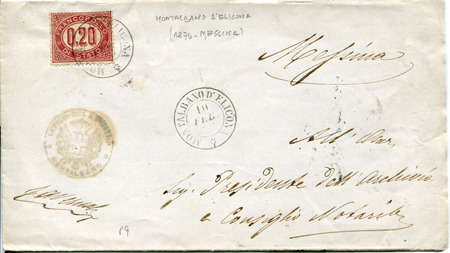 FRANCOBOLLO
0,20
DI STATO
MONTALBANO D'ELICONA
(1876-MESSINA)
Messina
MONTALBANO D'ELICONA
10
FEB
All' On.
Sig. Presidente dell'Archivio
e Consiglio Notarile
MONTALBANO
P9